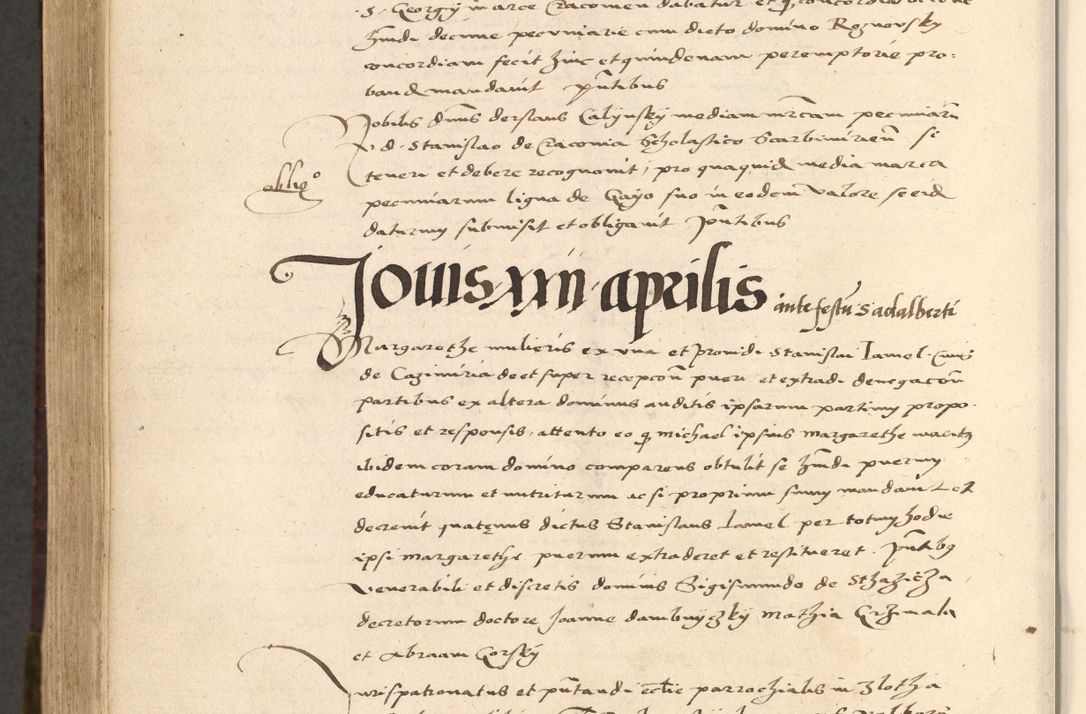 S. Georgÿ in arce Cracouien dabatur et q concordia
hmdi decime pecuniarie cum dicto domino Roznowsky
concordiam fecit hinc et quindenam peremptorie pro-
band mandauit pntibus
Nobilis dnus Derslaus Calynsky mediam mrcam pecuniaru
d. Stanislao de Cracouia Scholastico Scarbimirien se
teneri et debere recognouit, pro quaquid media marca
pecuniarum ligna de Gayo suo in eodem valore se eid
daturum submisit et obligauit pntibus
obligo
Jouis xxii aprilis ante festu S adalberti
Margarethe mulieris ex una et prouidi Stanislai Jamel Ciuis
de Cazimiria de et super recepcon pueri et extradi denegacon
partibus ex altera dominus auditis ipsarum partium propo-
sitis et responsis, attento eo q Michael ipsius Margarethe maritq
ibidem coram domino comparens obtulit se hmdi puerum
educaturum et nutriturum ac si proprium suum mandauit et
decreuit quatenus dictus Stanislaus Jamel per totum hodie
ipsi Margarethe puerum extraderet et restitueret. Pntibq
venerabili et discretis dominis Sigismundo de Sthazicza
decretorum doctore Joanne Dambnyczky Mathia Grzimala
et Abraam Gorsky
Jurispatronatus et pntandi eclie parrochialis in Zlothia